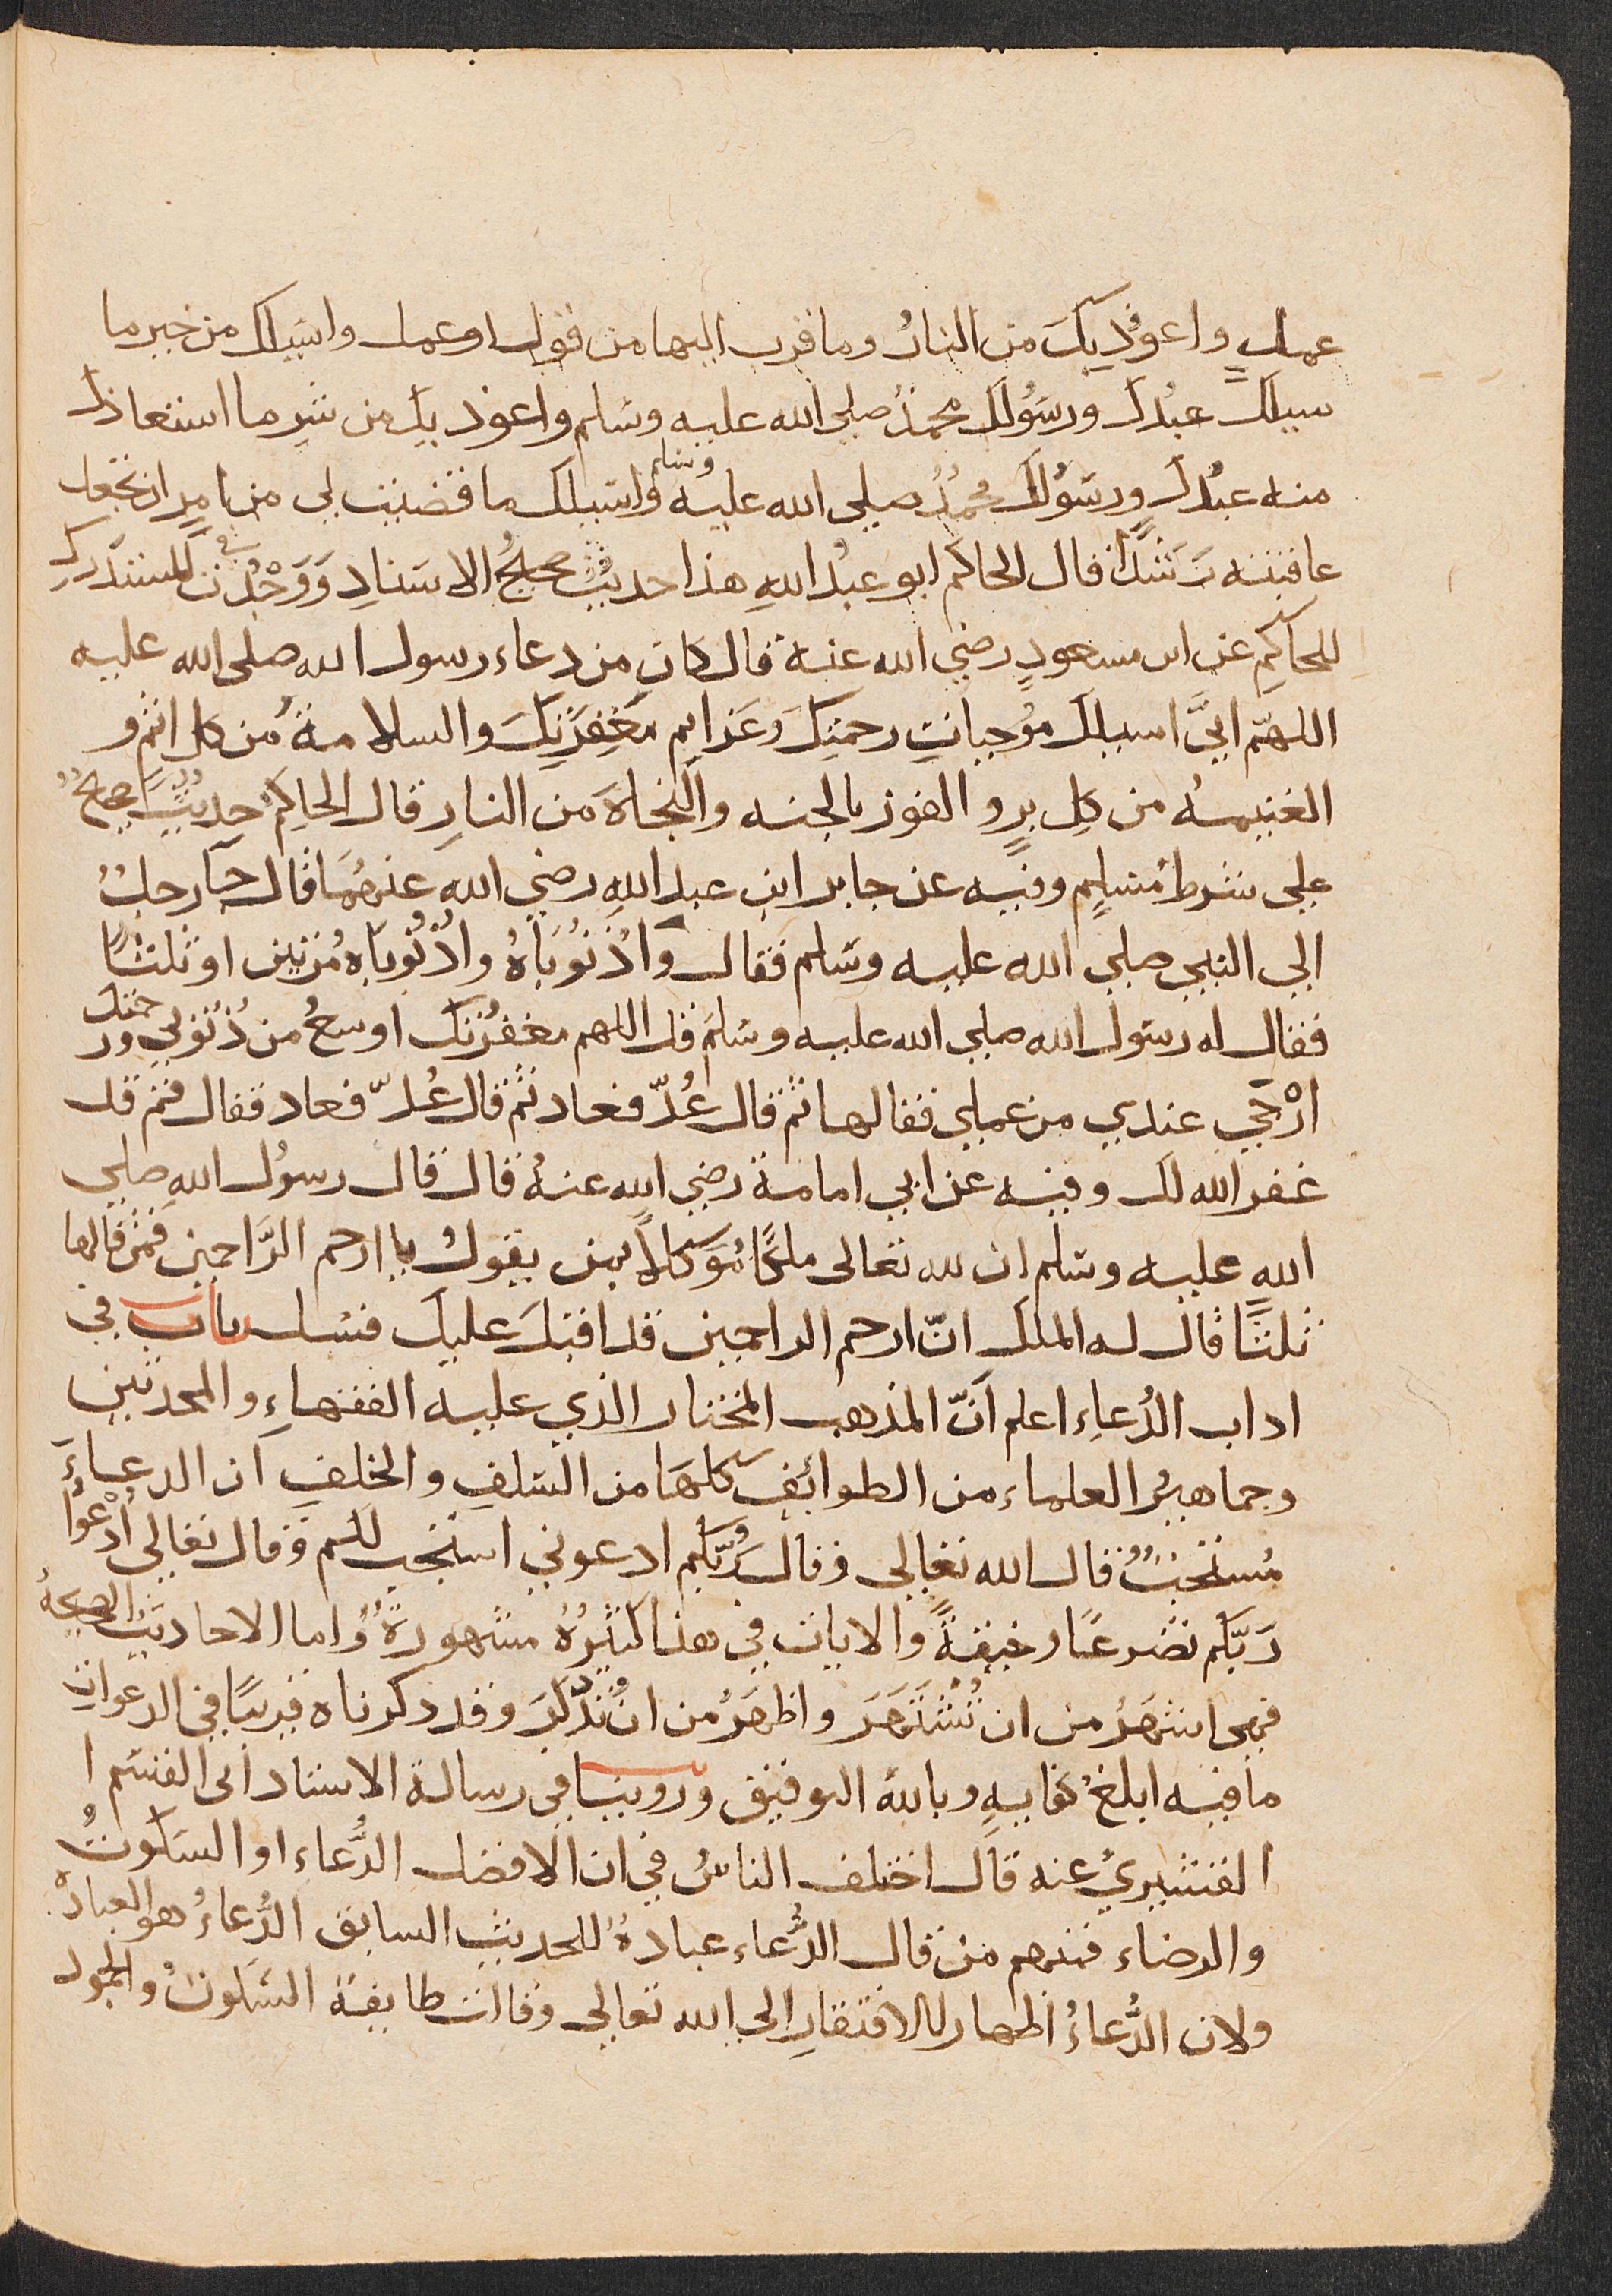 عملٍ واعوذ بِكَ من النارُ وما قرب اليها من قول او عمل واسيلك من خير ما
سيلك عبدك ورسُولك محمدٌ صلى الله عليه وسلم واعوذ بك من شرِ ما استعاذك
منه عبدك ورسُولك محمدٌ صلي الله عليه وسلم واسيلك ما قضيت لي من امرٍ ان تجعل
عاقبته رَشَدًا قال الحاكم ابو عبد اللهِ هذا حديثٌ صحيحُ الاسنادِ وَوَجْدْت في المستدركِ
للحاكمِ عن ابن مسعودٍ رضي الله عنه قال كان من دعاء رسول الله صلى الله عليه
اللهمّ انيَّ اسيلك مُوجباتِ رحمتِكَ وعَزايم مَغفِرَتِكَ والسلامة من كل اثم و
الغنيمه من كل برٍ والفوز بالجنه والنجاةَ من النارِ قال الحاكم حديثٌ صحيحٌ
على شرط مُسلمٍ وفيه عن جابر ابن عبد اللهِ رضي الله عنهُمَا قال جآ رجلٌ
الي النبي صلي الله عليه وسلم فقال وَاذُنُوبَاهُ واذُنُوبَاه مُرتين او ثلثًا
فقال له رسول الله صلي الله عليه وسلم قل اللهم مغفرُتك اوسعُ من ذُنُوبي ورحمتك
ارْجَي عندي من عملي فقالها ثم قال عُدّ فعاد ثم قال عُدّ فعاد فقال قم قد
غفر الله لك وفيه عن ابي امامة رضي الله عنهُ قال قال رسُول اللهِ صلي
اللهِ عليه وسلم ان لله تعالى ملكًا مُوَكلاً بمن يقول يا ارحم الرَّاحمين فمن قالها
ثلثًا قال له الملك انّ ارحم الراحمين قد اقبل عليك فسل باب في
اداب الدُعاء اعلم اَنّ المذهب المختار الذي عليه الفقهاءِ والمحدثين
وجماهيرُ العلماء من الطوائِف كلهَا من السَلفِ والخلفِ ان الدعاءَ
مُستحبٌ قال الله تعالى وقال رُبّكم ادعوني استجب لكم وقال تعالي اُدْعُوْا
رَبّكم تضرعًا وخيفةً والايات في هذا كثيرُةٌ مشهورةٌ واما الاحاديثُ الصحيحهُ
فهي اشهَرُ من ان تُشتَهَرَ واظهَرُ من ان تُذكَرَ وقد دكرناه قريبًا في الدعواتِ
مافيه ابلغُ كفايهٍ وبالله التوفيق وروينا في رسالة الاستاد ابى القسَم ا
القشيريُ عنه قال اختلف الناسُ في ان الافضل الدُّعاء او السكوتُ
والرضاء فمنهم من قال الدُّعاء عبادةٌ للحديثِ السابق الدُّعاءُ هو العبادْة
ولان الدُّعاءُ اظهار للافتقارِ الي الله تعالى وقالت طايفة السُكوت والجمود